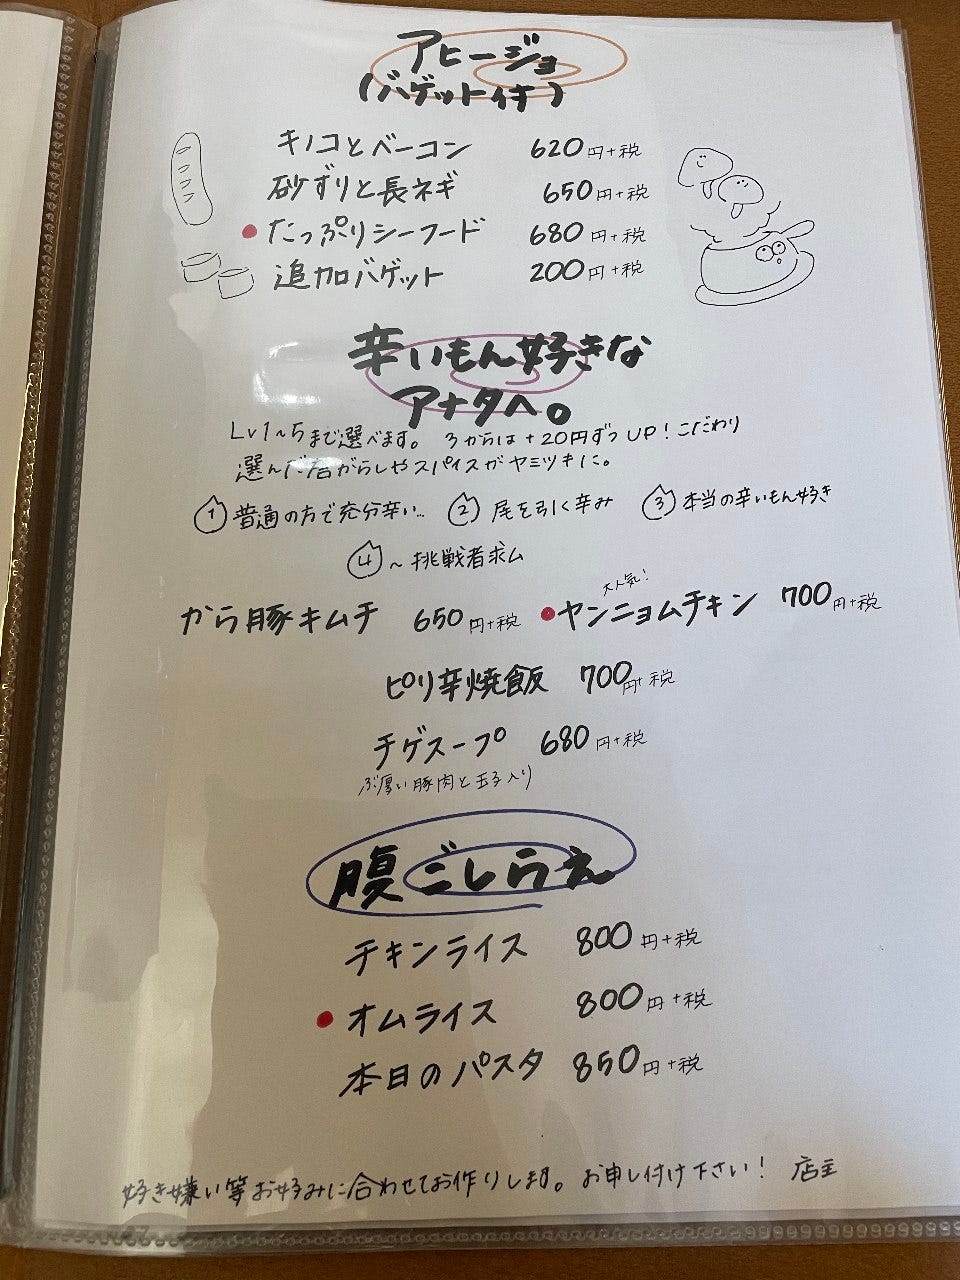 アヒージョ
(バゲット付)
キノコとベーコン 620円+税
砂ずりと長ネギ 650円+税
たっぷりシーフード 680円+税
追加バゲット 200円+税
辛いもん好きな
アナタへ。
Lv1~5まで選べます。 3からは+20円ずつUP!こだわり
選んだ唐がらしやスパイスがヤミツキに。
① 普通の方で充分辛い… ② 尾を引く辛み ③ 本当の辛いもん好き
④~挑戦者求ム
大人気!
から豚キムチ 650円+税 ヤンニョムチキン 700円+税
ピリ辛焼飯 700円+税
チゲスープ 680円+税
ぶ厚い豚肉と玉子入り
腹ごしらえ
チキンライス 800円+税
オムライス 800円+税
本日のパスタ 850円+税
好き嫌い等お好みに合わせてお作りします。お申し付け下さい! 店主